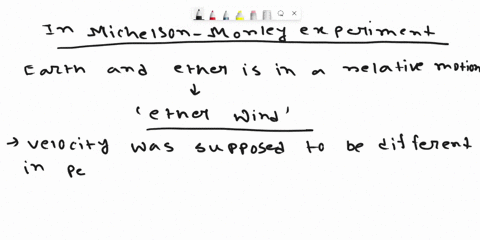 In Michelson-Monley experiment
Earth and ether is in a relative motion
↓
'ether wind'
→ velocity was supposed to be different
in pe